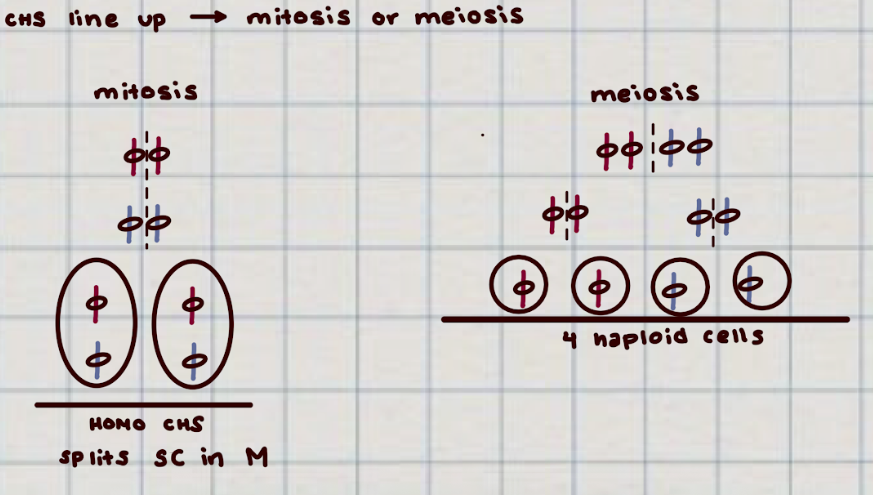 CHS line up → mitosis or meiosis
mitosis
meiosis
4 haploid cells
HOMO CHS
splits SC in M